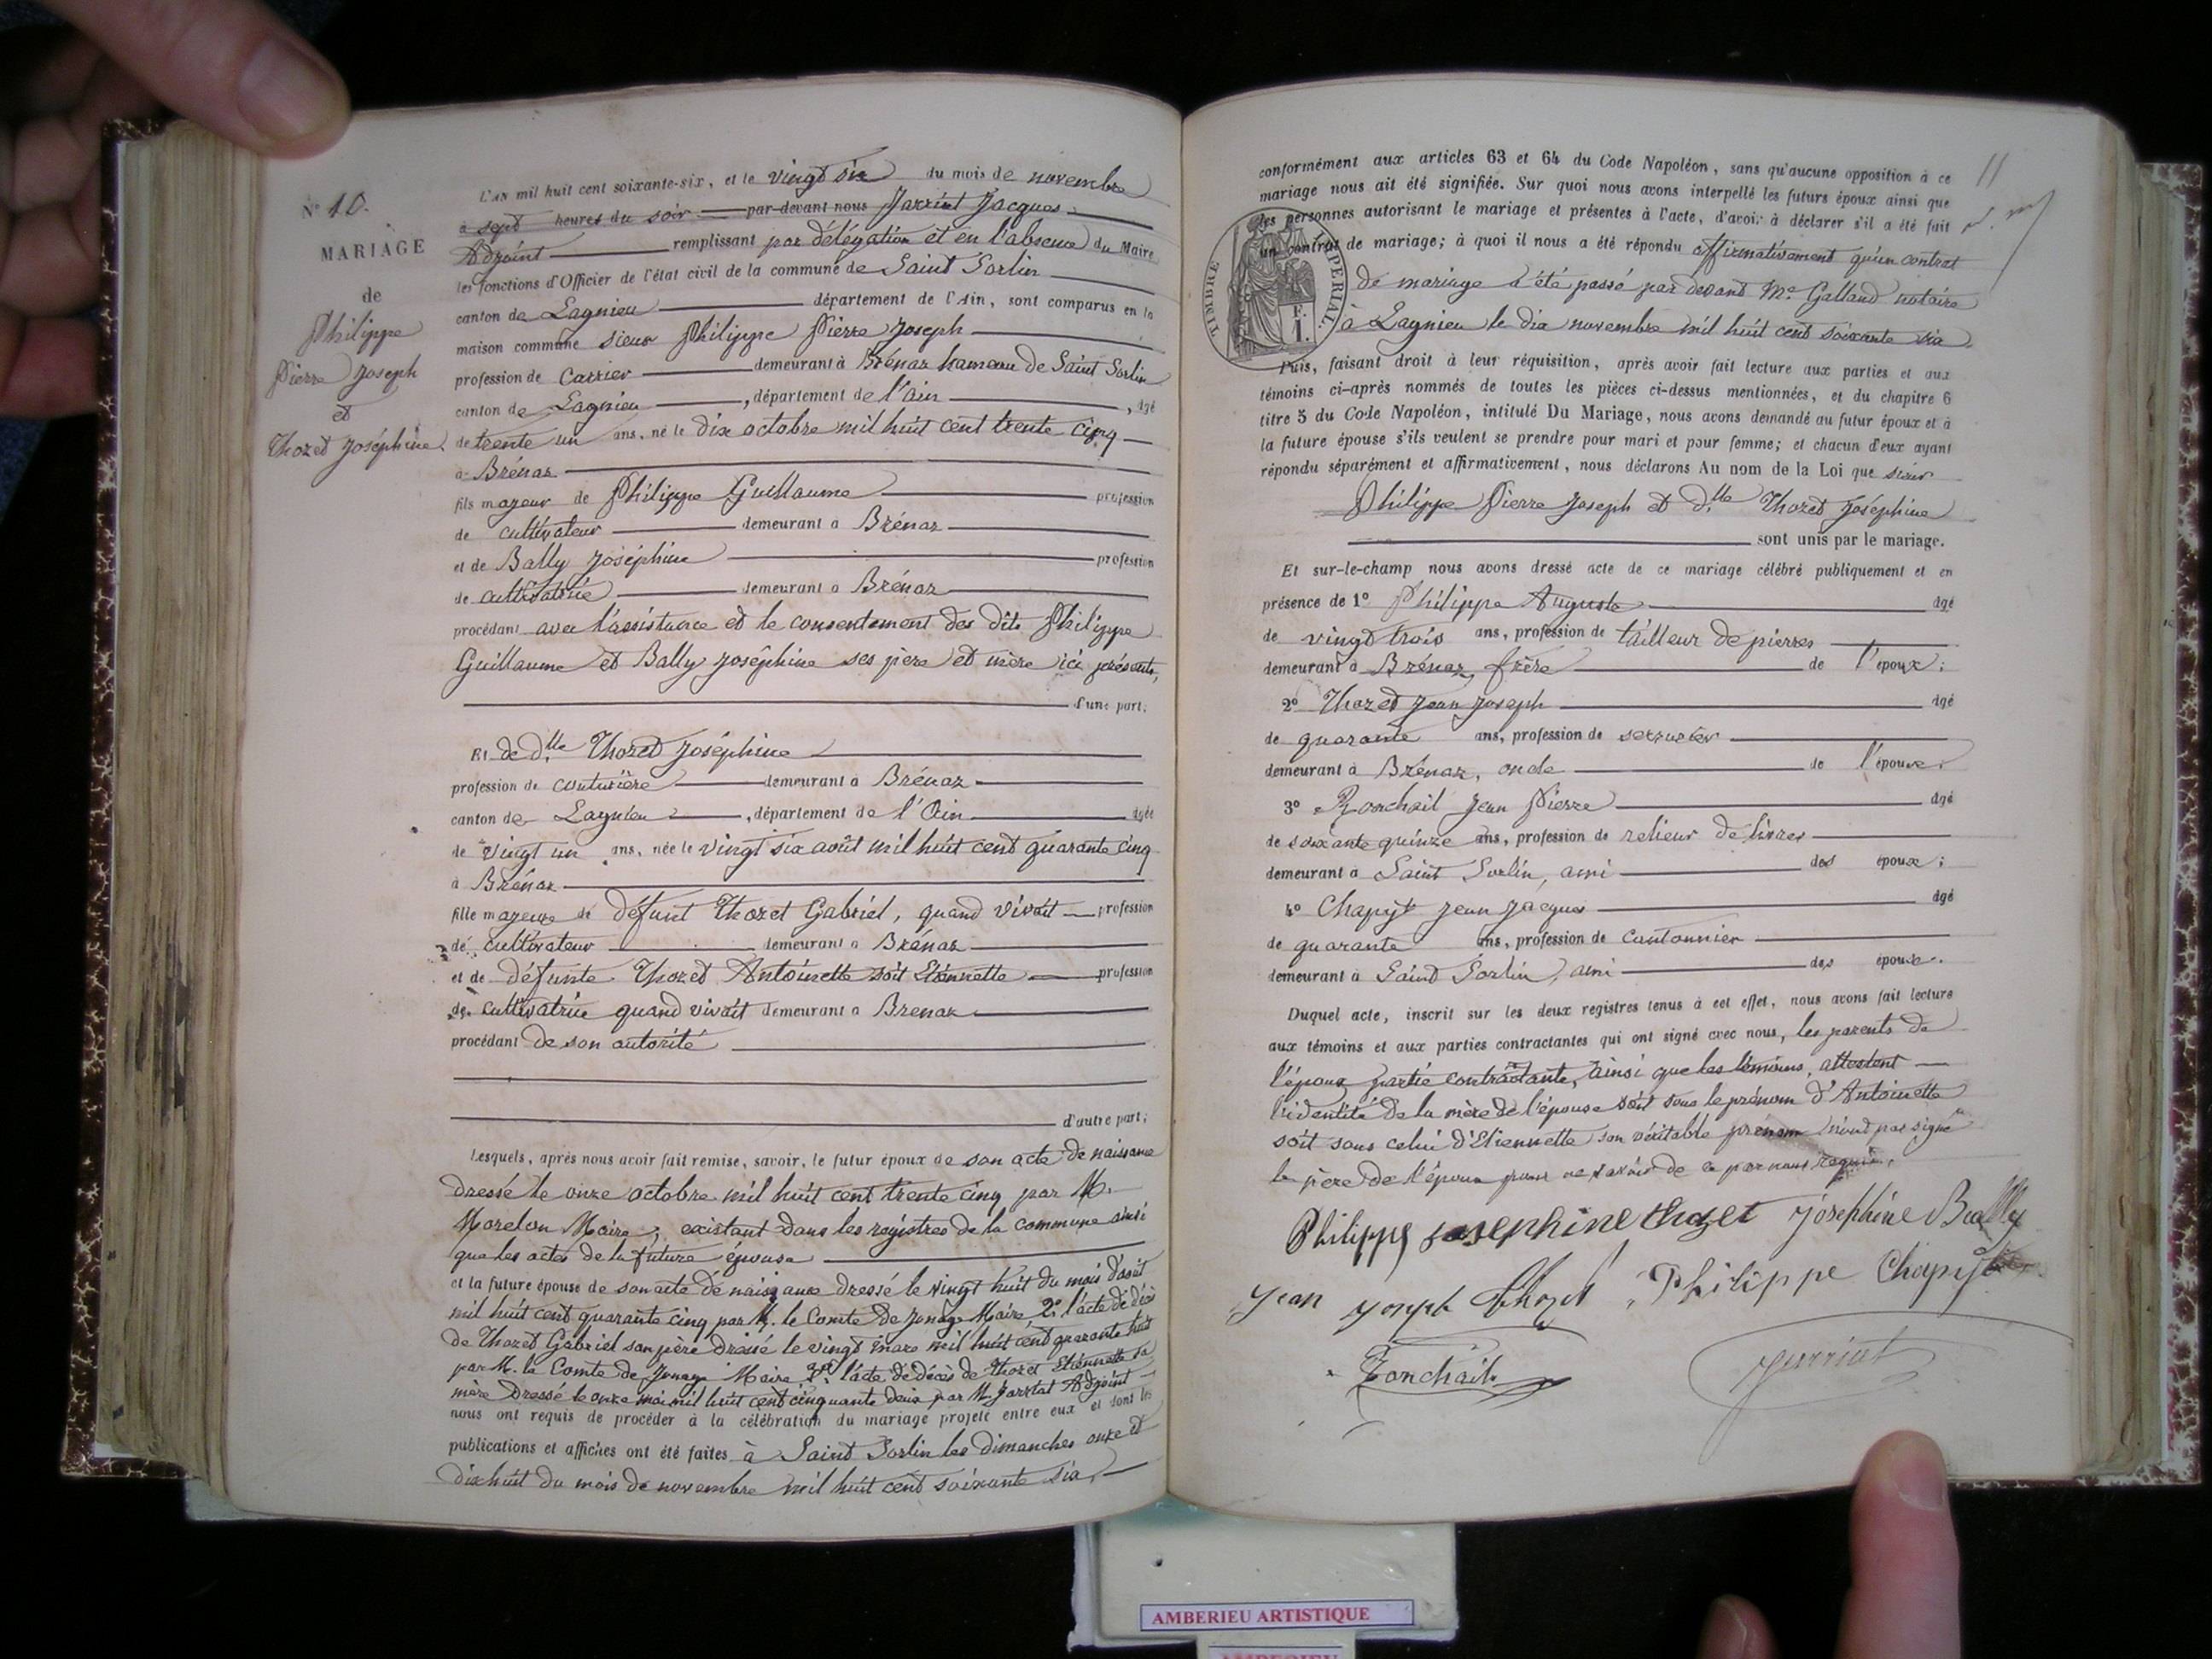 N° 10.
MARIAGE
de
Philippe
Pierre Joseph
et
Thozet Joséphine.
L'AN mil huit cent soixante-six, et le vingt six du mois de novembre
à sept heures du soir par-devant nous Jarriat Jacques
Adjoint remplissant par délégation et en l'absence du Maire
les fonctions d'Officier de l'état civil de la commune de Saint Sorlin
canton de Lagnieu département de l'Ain, sont comparus en la
maison commune sieur Philippe Pierre Joseph
profession de Carrier demeurant à Brénaz hameau de Saint Sorlin
canton de Lagnieu, département de l'ain, âgé
de trente un ans, né le dix octobre mil huit cent trente cinq
à Brénaz
fils majeur de Philippe Guillaume profession
de cultivateur demeurant à Brénaz
et de Bally Joséphine profession
de cultivatrice demeurant à Brénaz
procédant avec l'assistance et le consentement des dits Philippe
Guillaume et Bally Joséphine ses père et mère ici présents,
d'une part;
Et de d.lle Thozet Joséphine
profession de couturière demeurant à Brénaz
canton de Lagnieu, département de l'Ain âgée
de vingt un ans, née le vingt six août mil huit cent quarante cinq
à Brénaz
fille majeure de défunt Thozet Gabriel, quand vivait profession
de cultivateur demeurant à Brénaz
et de défunte Thozet Antoinette soit Etiennette profession
de cultivatrice quand vivait demeurant à Brenaz
procédant de son autorité
d'autre part;
Lesquels, après nous avoir fait remise, savoir, le futur époux de son acte de naissance
dressé le onze octobre mil huit cent trente cinq par M.
Morelon Maire, existant dans les registres de la commune ainsi
que les actes de la future épouse
et la future épouse de son acte de naissance dressé le vingt huit du mois d'août
mil huit cent quarante cinq par M. le Comte de Jonage Maire, 2° l'acte de décès
de Thozet Gabriel son père dressé le vingt mars mil huit cent quarante huit
par M. le Comte de Jonage Maire 3° l'acte de décès de Thozet Etiennette sa
mère dressé le onze mai mil huit cent cinquante deux par M. Jarriat Adjoint
nous ont requis de procéder à la célébration du mariage projeté entre eux et dont les
publications et affiches ont été faites à Saint Sorlin les dimanches onze et
dix huit du mois de novembre mil huit cent soixante six,
11
conformément aux articles 63 et 64 du Code Napoléon, sans qu'aucune opposition à ce
mariage nous ait été signifiée. Sur quoi nous avons interpellé les futurs époux ainsi que
les personnes autorisant le mariage et présentes à l'acte, d'avoir à déclarer s'il a été fait
un contrat de mariage; à quoi il nous a été répondu affirmativement qu'un contrat
de mariage a été passé par devant Me Galland notaire
à Lagnieu le dix novembre mil huit cent soixante six
TIMBRE IMPERIAL.
F.
1.
Puis, faisant droit à leur réquisition, après avoir fait lecture aux parties et aux
témoins ci-après nommés de toutes les pièces ci-dessus mentionnées, et du chapitre 6
titre 5 du Code Napoléon, intitulé Du Mariage, nous avons demandé au futur époux et à
la future épouse s'ils veulent se prendre pour mari et pour femme; et chacun d'eux ayant
répondu séparément et affirmativement, nous déclarons Au nom de la Loi que sieur
Philippe Pierre Joseph et d.lle Thozet Joséphine
sont unis par le mariage.
Et sur-le-champ nous avons dressé acte de ce mariage célébré publiquement et en
présence de 1° Philippe Auguste âgé
de vingt trois ans, profession de tailleur de pierres
demeurant à Brénaz, frère de l'époux;
2° Thozet Jean Joseph âgé
de quarante ans, profession de serrurier
demeurant à Brénaz, oncle de l'épouse.
3° Ronchail Jean Pierre âgé
de soixante quinze ans, profession de relieur de livres
demeurant à Saint Sorlin, ami des époux;
4° Chapyt Jean Jacques âgé
de quarante ans, profession de cantonnier
demeurant à Saint Sorlin, ami des époux.
Duquel acte, inscrit sur les deux registres tenus à cet effet, nous avons fait lecture
aux témoins et aux parties contractantes qui ont signé avec nous, les parents de
l'époux partie contractante, ainsi que les témoins, attestent
l'identité de la mère de l'épouse soit sous le prénom d'Antoinette
soit sous celui d'Etiennette son véritable prénom n'ont pas signé
le père de l'époux pour ne savoir de ce par nous requis.
Philippe Josephine thozet Joséphine Bally
Jean Joseph thozet Philippe Chapyt
Ronchail Jarriat
AMBERIEU ARTISTIQUE
AMBERIEU